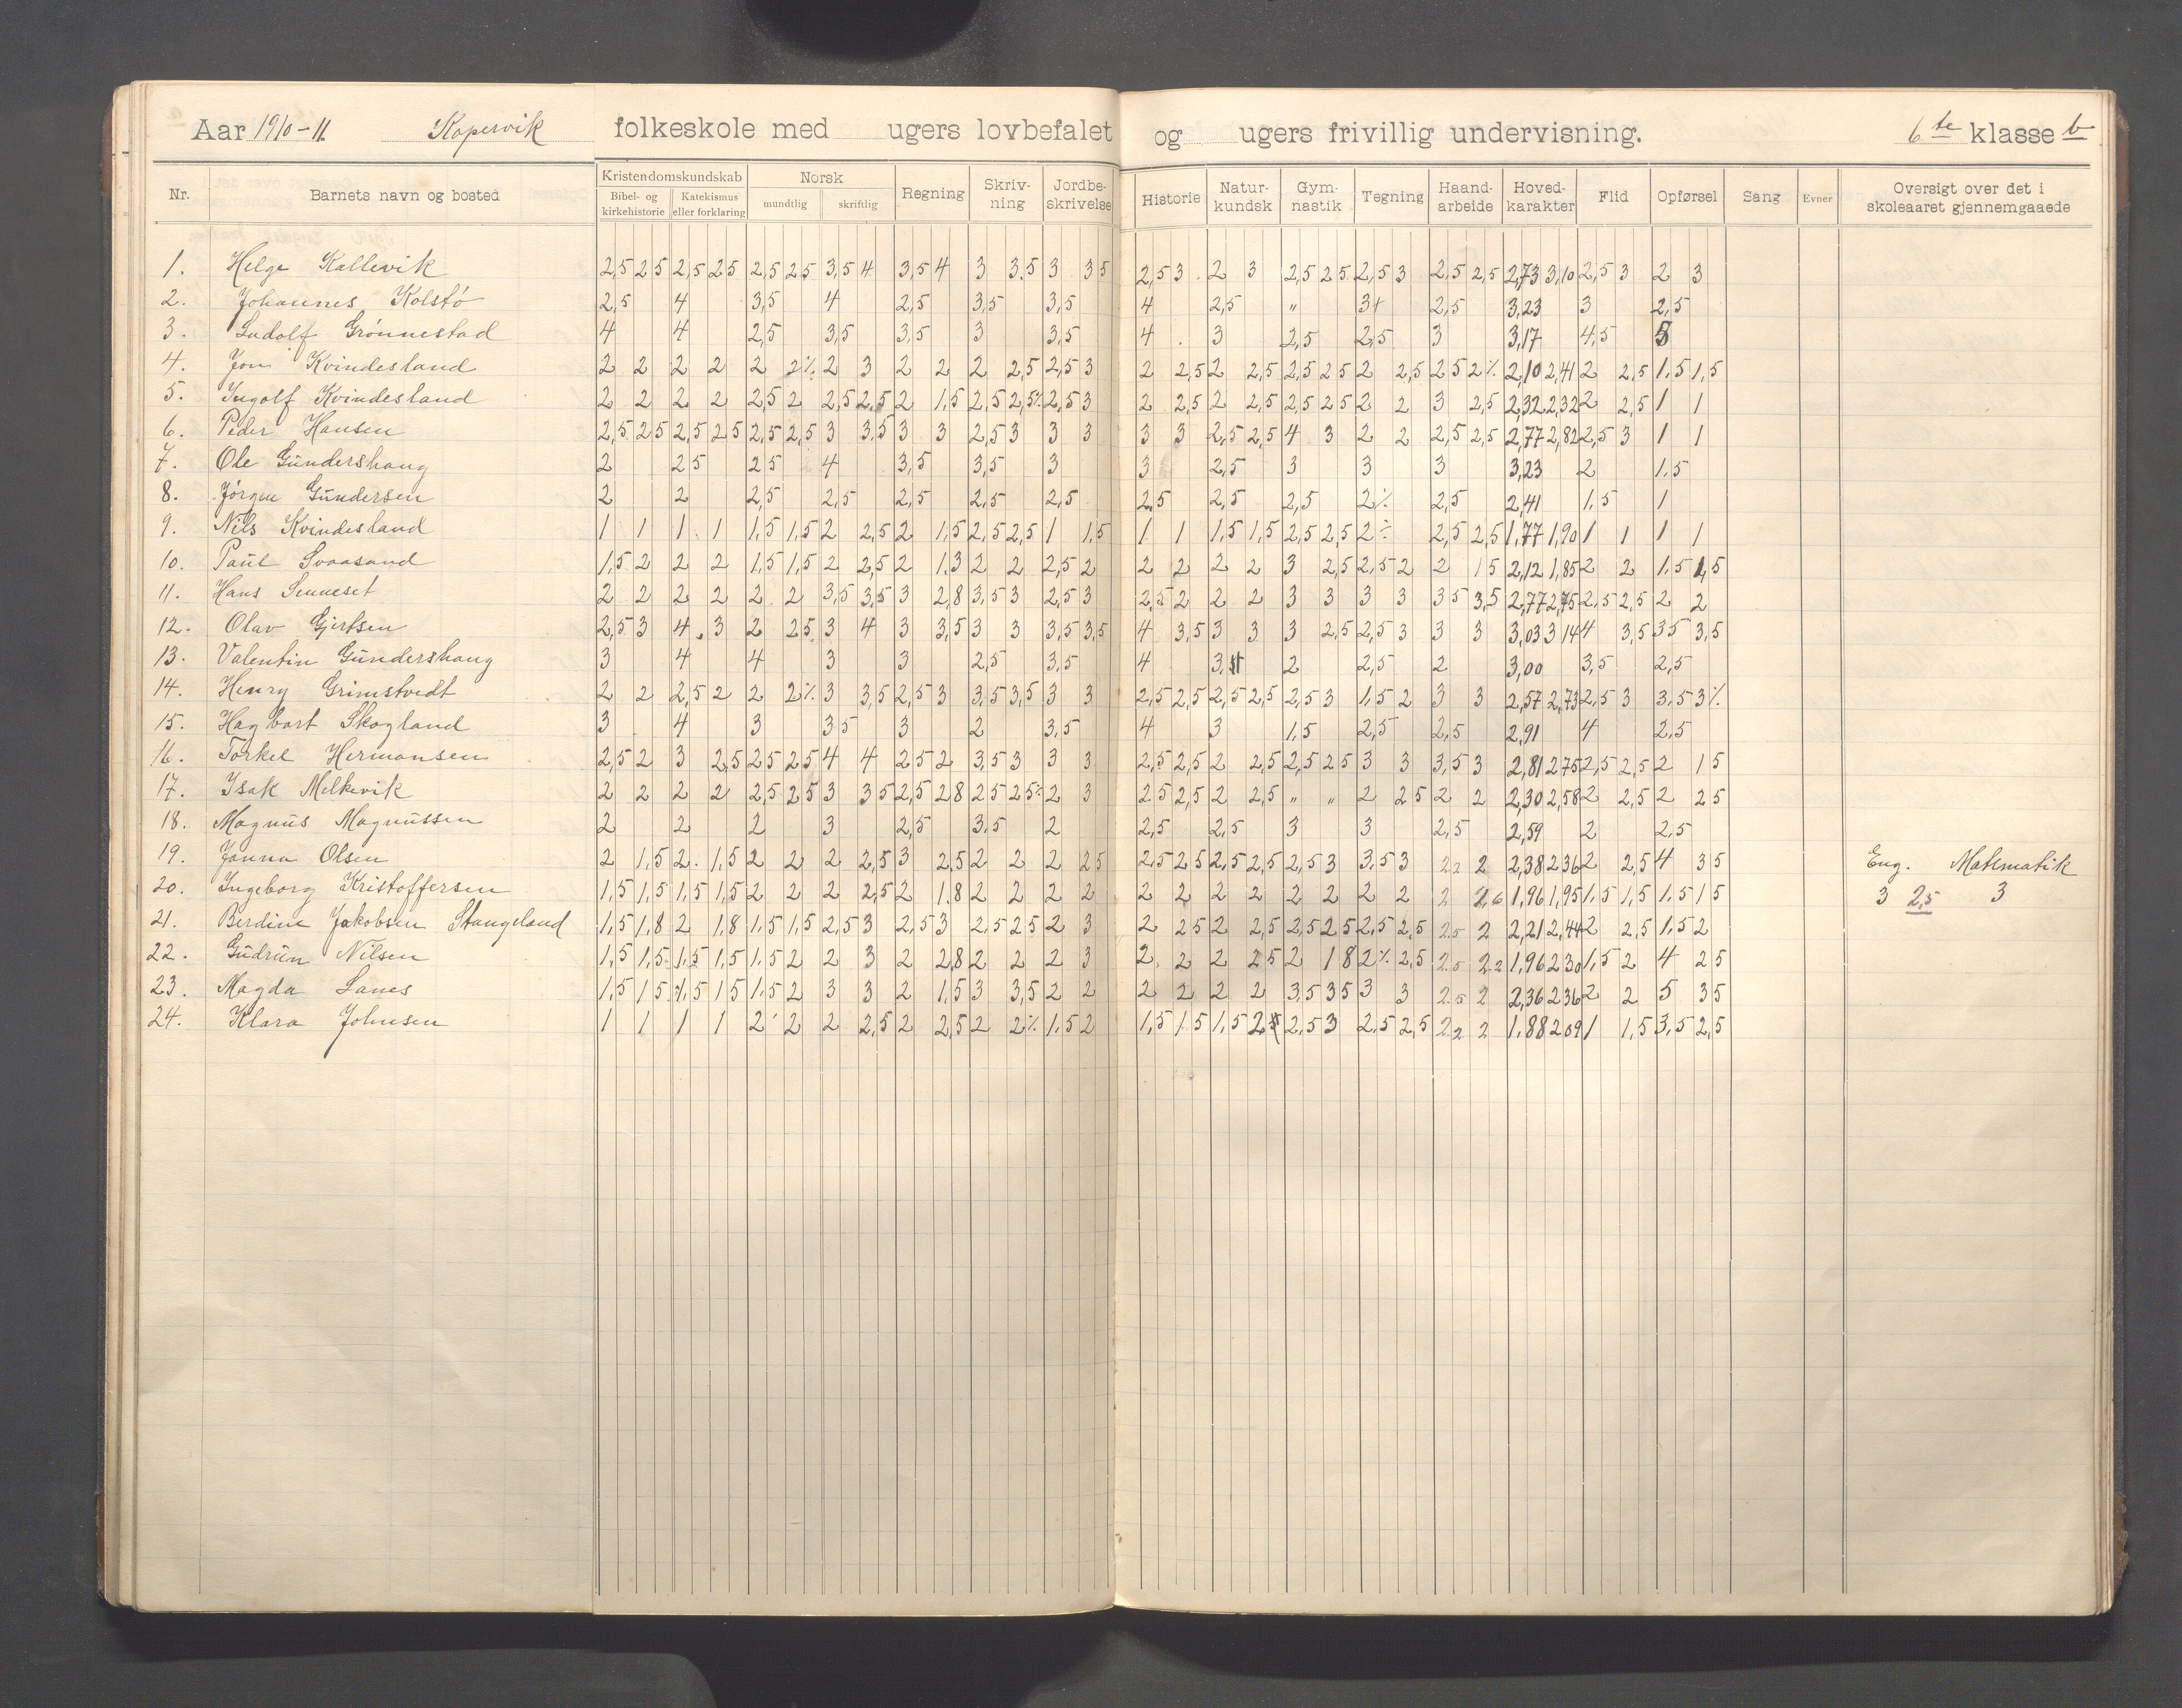 Aar 1910-11. Kopervik folkeskole med ugers lovbefalet og ugers frivillig undervisning. 6te klasse b
Nr. Barnets navn og bosted Kristendomskundskab Norsk Regning Skriv-ning Jordbe-skrivelse Historie Natur-kundsk Gym-nastik Tegning Haand-arbeide Hoved-karakter Flid Opførsel Sang Evner Oversigt over det i skoleaaret gjennemgaaede
Bibel- og kirkehistorie Katekismus eller forklaring mundtlig skriftlig
1. Helge Kallevik 2,5 25 2,5 25 2,5 25 3,5 4 3,5 4 3 3,5 3 35 2,5 3 2 3 2,5 25 2,5 3 2,5 2,5 2,73 3,10 2,5 3 2 3
2. Johannes Kolstø 2,5 4 3,5 4 2,5 3,5 3,5 4 2,5 " 3+ 2,5 3,23 3 2,5
3. Ludolf Grønnestad 4 4 2,5 3,5 3,5 3 3,5 4 3 2,5 2,5 3 3,17 4,5
4. Jon Kvindesland 2 2 2 2 2 2% 2 3 2 2 2 2,5 2,5 3 2 2,5 2 2,5 2,5 25 2 2,5 25 2% 2,10 2,41 2 2,5 1,5 1,5
5. Ingolf Kvindesland 2 2 2 2 2,5 2 2,5 2,5 2 1,5 2,5 2,5% 2,5 3 2 2,5 2 2,5 2,5 25 2 2 3 2,5 2,32 2,32 2 2,5 1 1
6. Peder Hansen 2,5 25 2,5 25 2,5 2,5 3 3,5 3 3 2,5 3 3 3 3 3 2,5 2,5 4 3 2 2 2,5 2,5 2,77 2,82 2,5 3 1 1
7. Ole Gundershaug 2 25 25 4 3,5 3,5 3 3 2,5 3 3 3 3,23 2 1.5
8. Jørgen Gundersen 2 2 2,5 2,5 2,5 2,5 2,5 2,5 2,5 2,5 2% 2,5 2,41 1,5 1
9. Nils Kvindesland 1 1 1 1 1,5 1,5 2 2,5 2 1,5 2,5 2,5 1 1,5 1 1 1,5 1,5 2,5 2,5 2% 2,5 2,5 1,77 1,90 1 1 1 1
10. Paul Svaasand 1,5 2 2 2 1,5 1,5 2 2,5 2 1.3 2 2 2,5 2 2 2 2 2 3 2,5 2,5 2 2 15 2,12 1,85 2 2 1.5 1,5
11. Hans Senneset 2 2 2 2 2 2 3,5 3,5 3 2,8 3,5 3 2,5 3 2,5 2 2 2 3 3 3 3 35 3,5 2,77 2,75 2,5 2,5 2 2
12. Olav Gjertsen 2,5 3 4 3 2 25 3 4 3 3,5 3 3 3,5 3,5 4 3,5 3 3 3 2,5 2,5 3 3 3 3,03 3 14 4 3,5 35 3,5
13. Valentin Gundershaug 3 4 4 3 3 2,5 3,5 4 3 2 2,5 2 3,00 3,5 2,5
14. Henry Grimstvedt 2 2 2,5 2 2 2% 3 3,5 2,5 3 3,5 3,5 3 3 2,5 2,5 2,5 2,5 2,5 3 1,5 2 3 3 2,57 2,73 2,5 3 3,5 3%
15. Hagbart Skogland 3 4 3 35 3 2 3,5 4 3 1,5 2,5 2,5 2,91 4 2,5
16. Torkel Hermansen 2,5 2 3 2,5 25 25 4 4 25 2 3,5 3 3 3 2,5 2,5 2 2,5 2,5 25 3 3 3,5 3 2,81 275 2,5 2,5 2 15
17. Isak Melkevik 2 2 2 2 2,5 25 3 35 2,5 28 25 25% 2 3 25 2,5 2 2,5 " " 2 25 2 2 2,30 2,58 2 2,5 2 25
18. Magnus Magnussen 2 2 2 3 2,5 3.5 2 2,5 2,5 3 3 2,5 2,59 2 2,5
19. Janna Olsen 2 1,5 2 1,5 2 2 2 2,5 3 2,5 2 2 2 25 2,5 25 2,5 2,5 2,5 3 3.5 3 22 2 2,38 236 2 2,5 4 35
20. Ingeborg Kristoffersen 1,5 1,5 1,5 1,5 2 2 2 2,5 2 1.8 2 2 2 2 2 2 2 2 2 2 2 2 2 2,6 1,96 1,95 1,5 1,5 1.5 15
21. Berdine Jakobsen Stangeland 1,5 1,8 2 1,8 1.5 1,5 2,5 3 2,5 3 2,5 25 2 3 2 25 2 2,5 2,5 25 2,5 2,5 2.5 2 2,21 2,44 2 2,5 1,5 2
22. Gudrun Nilsen 1,5 1,5 1,5 1,5 1.5 2 2 3 2 2,8 2 2 2 3 2 2 2 25 2 18 2% 2,5 2.5 2.2 1,96 230 1,5 2 4 25
23. Magda Sanes 1,5 15 1,5 15 1.5 2 3 3 2 1,5 3 3,5 2 2 2 2 2 2 3,5 35 3 3 2.5 2 2,36 236 2 2 5 35
24. Klara Johnsen 1 1 1 1 2 2 2 2,5 2 2,5 2 2% 1,5 2 1,5 15 1,5 2 2,5 3 2,5 2,5 2.2 2 1,88 209 1 1,5 3,5 2,5
Eng. Matematik
3 2,5 3